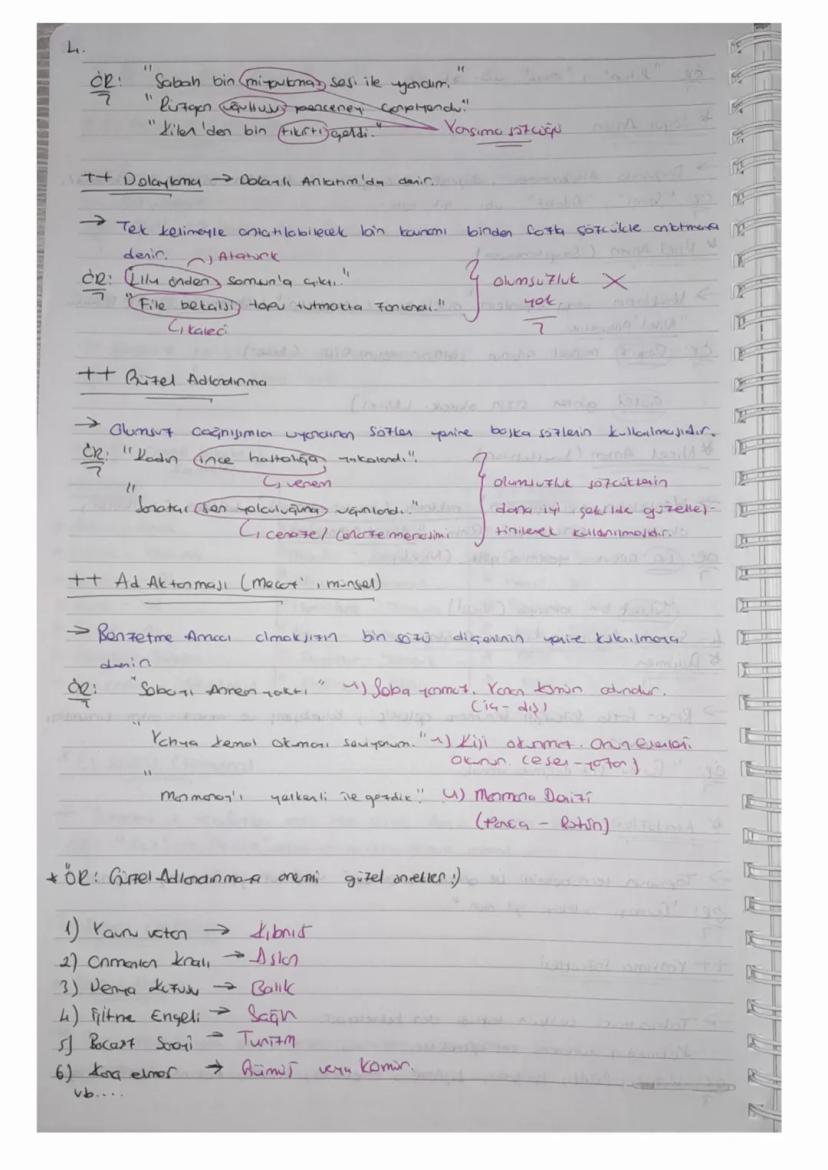 4.
ÖR: "Sabah bir mırıltımaz sesi ile uyandım."
"Rüzgar uğultusu pencereyi çarpıyordu."
"Kiler'den bir tıkırtı geldi." Yansıma sözcüğü
++ Dolaylama → Dolaylı Anlatım'da denir.
→ Tek kelimeyle anlatılabilecek bir kavramı birden fazla sözcükle anlatmaya
denir. Atatürk
ÖR: "Ulu önder, Samsun'a çıktı." olumsuzluk
"File bekçisi topu tutmakta zorlandı." yok
kaleci
++ Güzel Adlandırma
→ Olumsuz çağrışımla uyandıran sözler yerine başka sözlerin kullanılmasıdır.
ÖR: "Kadın ince hastalığa yakalandı."
verem olumsuzluk sözcüklerin
"Sanatçı son yolculuğuna uğurlandı." daha iyi şekilde güzelleş-
cenaze/cenaze merasimi tirilerek kullanılmasıdır.
++ Ad Aktarması (Mecaz-ı mürsel)
→ Benzetme Amacı olmaksızın bir sözü diğerinin yerine kullanılmaya
denir
ÖR: "Sobayı Annem yaktı" Soba yanmaz. Yanan kömür odundur.
(iç-dış)
"Yahya Kemal okumayı seviyorum." Kişi okunmaz. Onun Eserleri
okunur. (eser-yazar)
"Marmara'yı yelkenli ile gezdik." Marmara Denizi
(Parça - Bütün)
* ÖR: Güzel Adlandırmaya önemi güzel örnekler :)
1) Yavru vatan → Kıbrıs
2) Ormanlar kralı → Aslan
3) Derya kuzusu → Balık
4) İşitme Engeli → Sağır
5) Bacasız Sanayi → Turizm
6) Kara elmas → Gümüş veya Kömür.
vb....